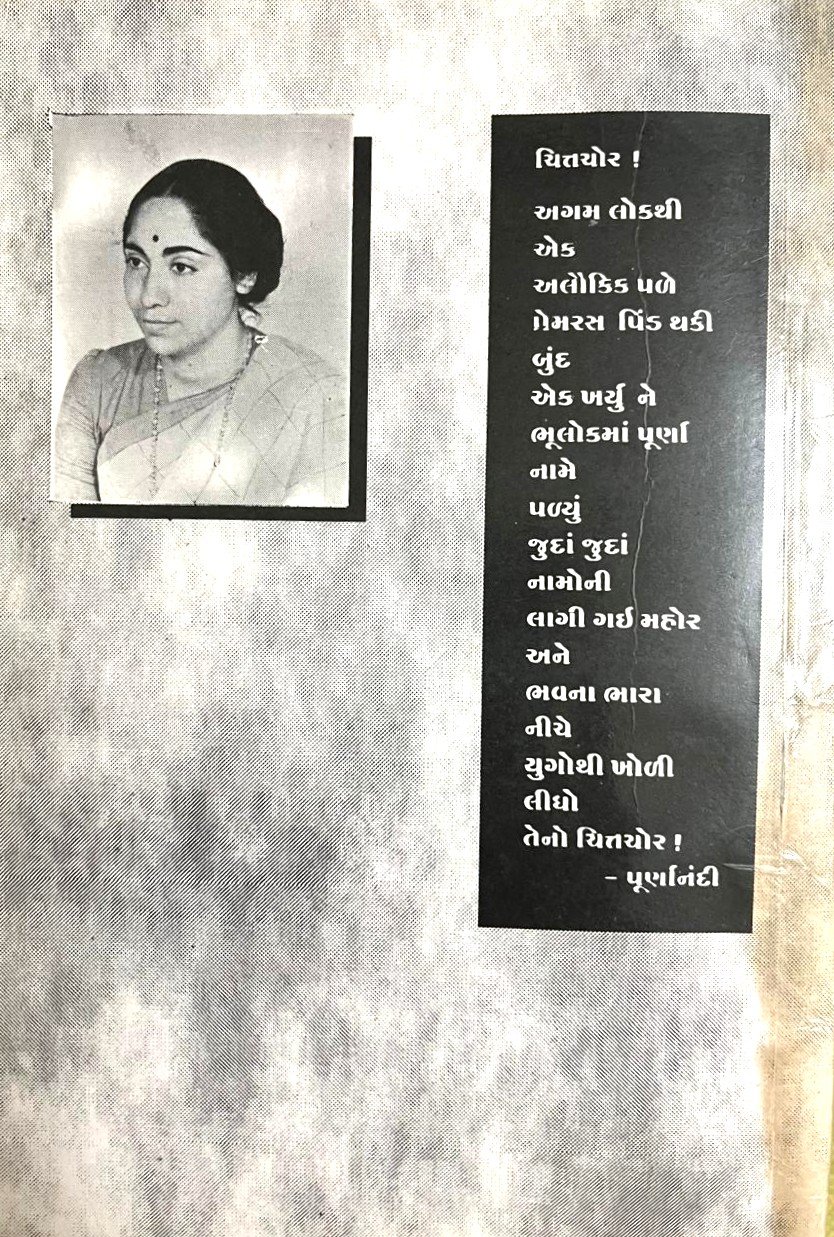 ચિત્તચોર !
અગમ લોકથી
એક
અલૌકિક પળે
પ્રેમરસ પિંડ થકી
બુંદ
એક ખર્યુ ને
ભૂલોકમાં પૂર્ણા
નામે
પળ્યું
જુદાં જુદાં
નામોની
લાગી ગઈ મહોર
અને
ભવના ભારા
નીચે
યુગોથી ખોળી
લીધો
તેનો ચિત્તચોર !
– પૂર્ણાનંદી